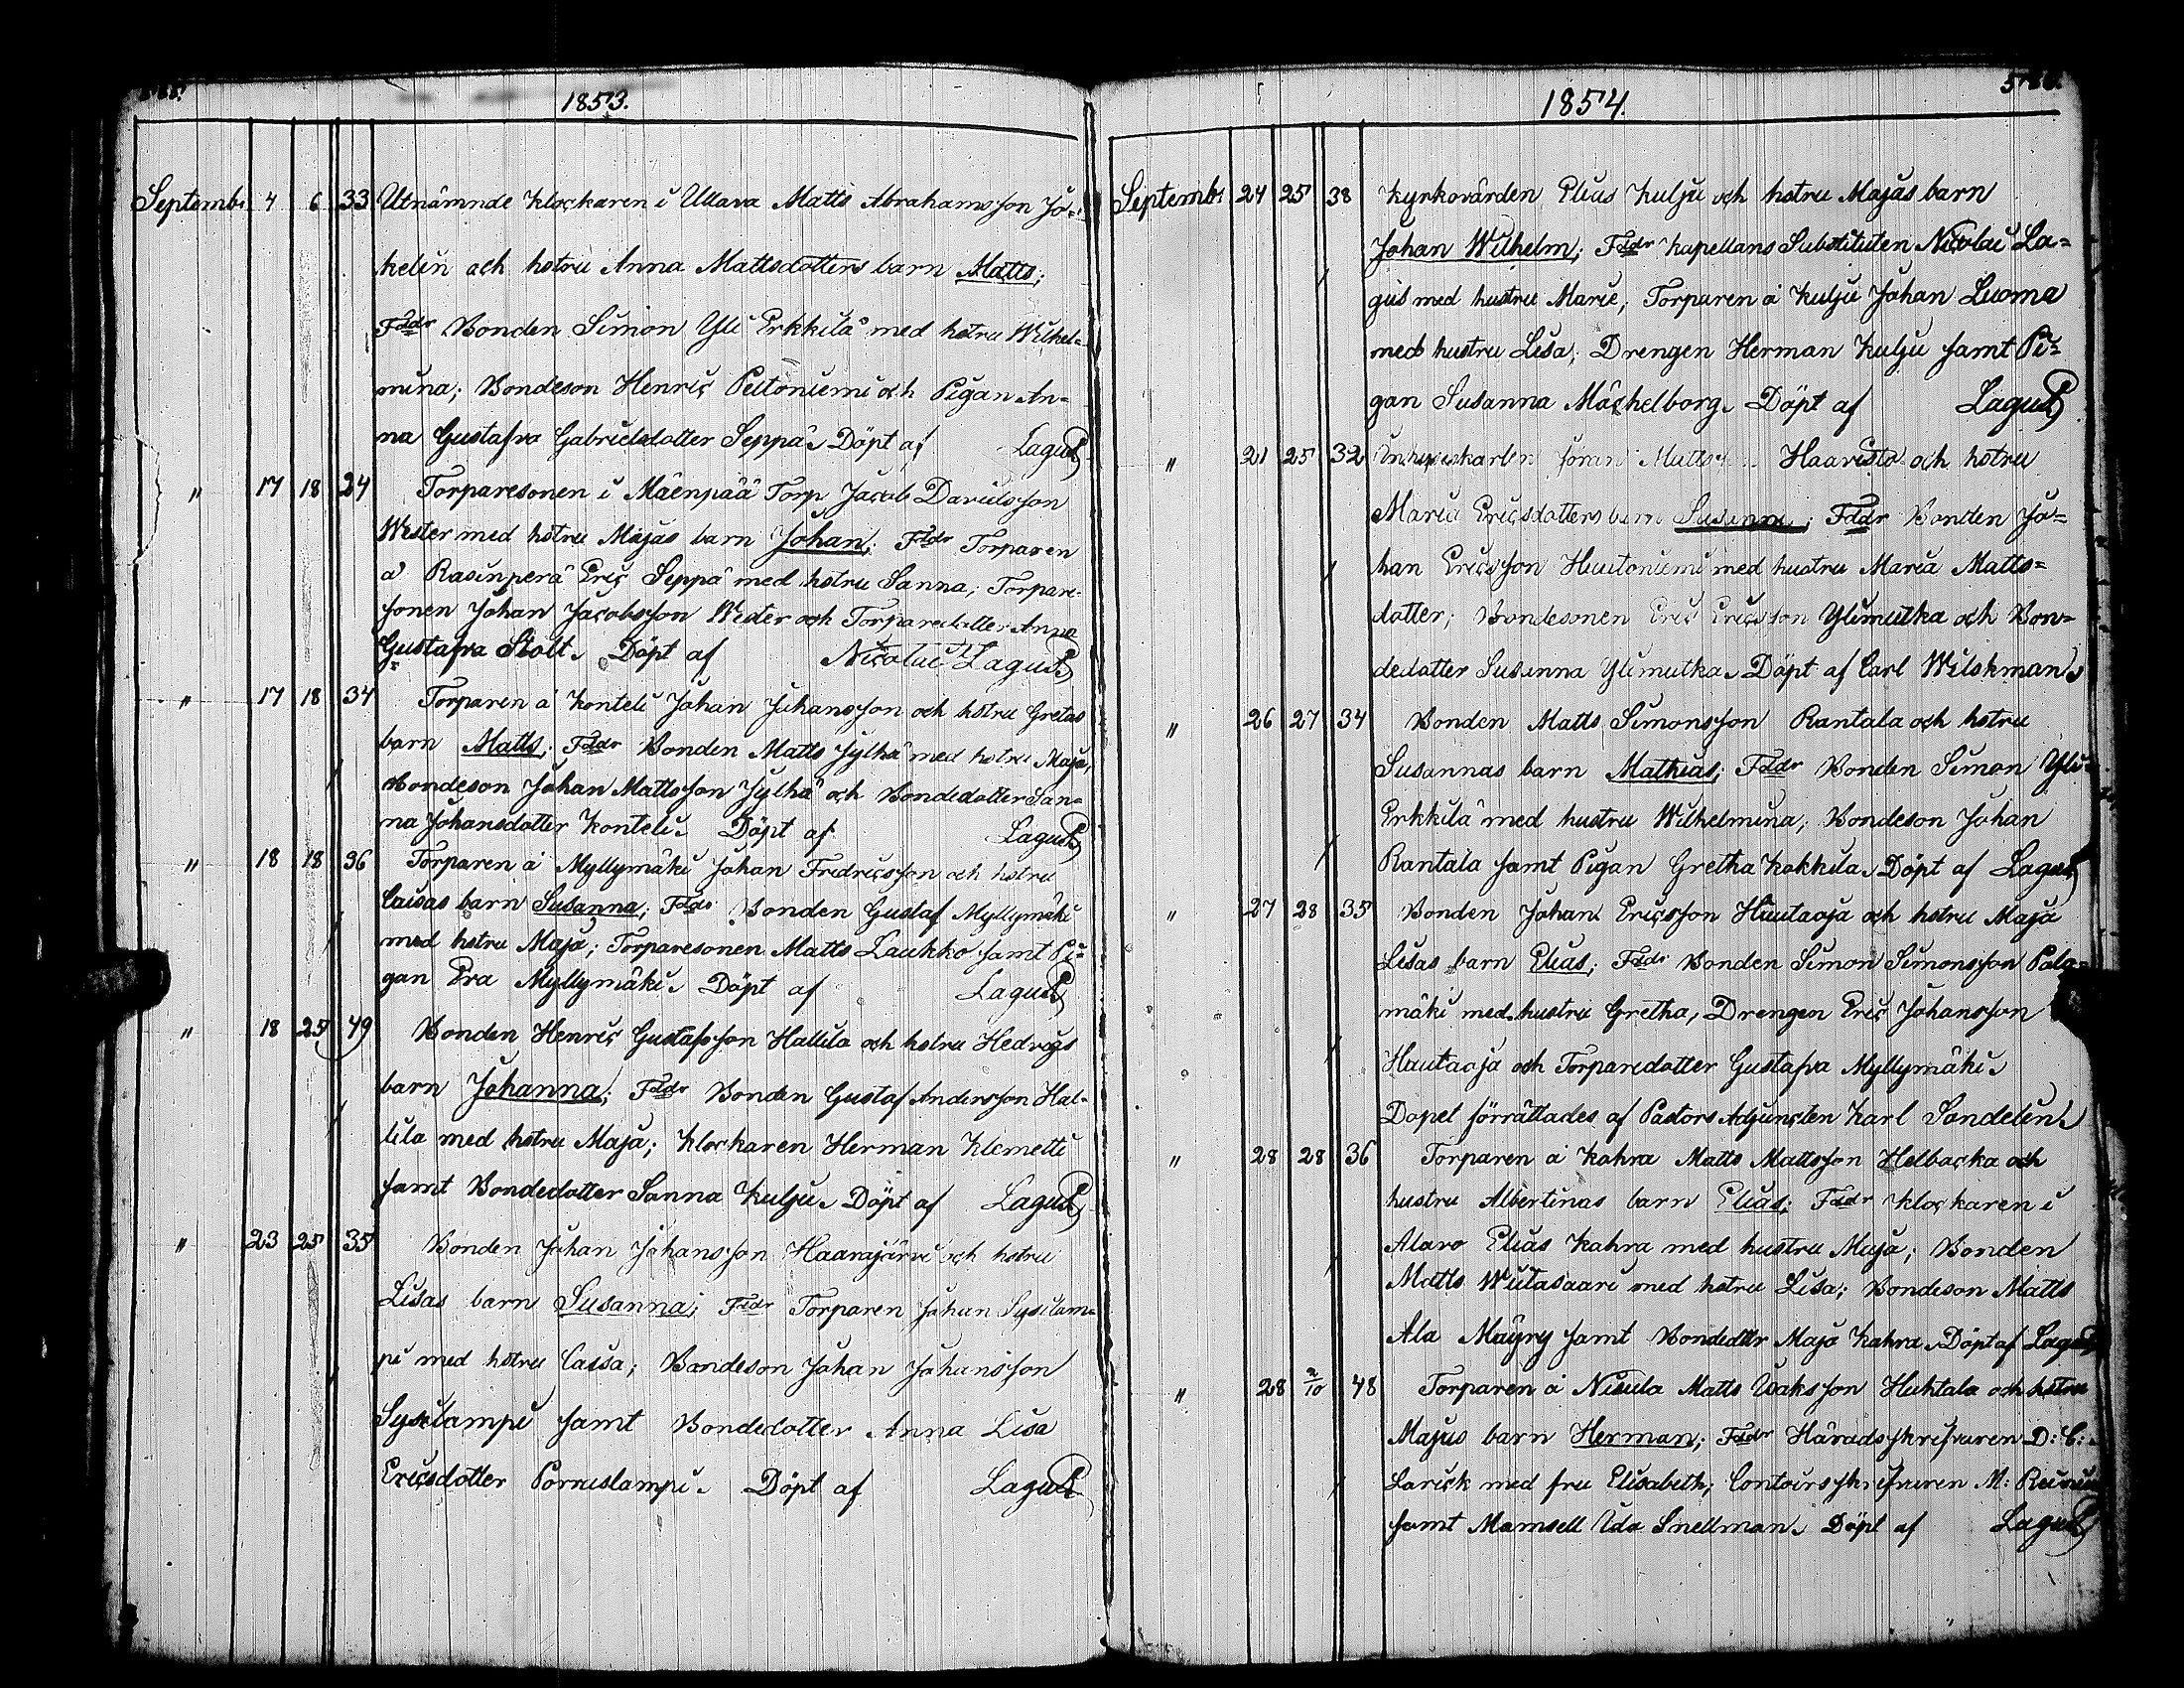 1853.
Septembr 4 6 33 Utnämnde Klockaren i Ullava Matts Abrahamsson Jo-
kelin och hstru Anna Mattsdotters barn Matts;
Fddr Bonden Simon Yli Erkkilä med hstru Wilhel-
mina; Bondeson Henric Peltoniemi och Pigan An-
na Gustafva Gabrielsdotter Seppä. Döpt af Lagus
" 17 18 24 Torparesonen i Mäenpää Torp Jacob Davidsson
Wester med hstru Majas barn Johan; Fddr Torparen
å Rasinperä Eric Seppä med hstru Sanna; Torpare-
sonen Johan Jacobsson Wester och Torparedotter Anna
Gustafva Stolt. Döpt af Nicolai Lagus
" 17 18 34 Torparen å Konteli Johan Johansson och hstru Gretas
barn Matts; Fddr Bonden Matts Jylhä med hstru Maja,
Bondeson Johan Mattsson Jylhä och Bondedotter San-
na Johansdotter Konteli. Döpt af Lagus
" 18 18 36 Torparen å Myllymäki Johan Fredricsson och hstru
Caisas barn Susanna; Fddr Bonden Gustaf Myllymäki
med hstru Maja; Torparesonen Matts Laukko samt Pi-
gan Eva Myllymäki. Döpt af Lagus
" 18 25 49 Bonden Henric Gustafsson Hallila och hstru Hedvigs
barn Johanna; Fddr Bonden Gustaf Andersson Hal-
lila med hstru Maja; Klockaren Herman Klemetti
samt Bondedotter Sanna Kulju. Döpt af Lagus
" 23 25 35 Bonden Johan Johansson Haarajärvi och hstru
Lisas barn Susanna; Fddr Torparen Johan Sysilam-
pi med hstru Caisa; Bondeson Johan Johansson
Sysilampi samt Bondedotter Anna Lisa
Ericsdotter Porraslampi. Döpt af Lagus
1854.
Septembr 24 25 38 Kyrkovärden Elias Kulju och hstru Majas barn
Johan Wilhelm; Fddr Kapellans Substituten Nicolai La-
gus med hustru Marie; Torparen å Kulju Johan Luoma
med hustru Lisa; Drengen Herman Kulju samt Pi-
gan Susanna Mächelborg. Döpt af Lagus
" 21 25 32 Haaristo och hstru
Maria Ericsdotters barn Susanna; Fddr Bonden Jo-
han Ericsson Huutoniemi med hustru Maria Matts-
dotter; Bondesonen Eric Ericsson Ylimutka och Bon-
dedotter Susanna Ylimutka. Döpt af Carl Wilskman.
" 26 27 34 Bonden Matts Simonsson Rantala och hstru
Susannas barn Mathias; Fddr Bonden Simon Yli-
Erkkilä med hustru Wilhelmina; Bondeson Johan
Rantala samt Pigan Gretha Kokkila. Döpt af Lagus
" 27 28 35 Bonden Johan Ericsson Hautaoja och hstru Maja
Lisas barn Elias; Fddr Bonden Simon Simonsson Palo-
mäki med hustru Gretha, Drengen Eric Johansson
Hautaoja och Torparedotter Gustafva Myllymäki.
Dopet förrättades af Pastors Adjuncten Karl Sandelin.
" 28 28 36 Torparen å Kahra Matts Mattsson Helbacka och
hustru Albertinas barn Elias; Fddr Klockaren i
Alavo Elias Kahra med hustru Maja; Bonden
Matts Wiitasaari med hstru Lisa; Bondeson Matts
Ala Mäyry samt Bondedttr Maja Kahra. Döpt af Lagus
" 28 2/10 48 Torparen å Nisula Matts Isaksson Huhtala och hstru
Majas barn Herman; Fddr Häradsskrifvaren D: C:
Larick med fru Elisabeth; Contoirsskrifvaren M:
samt Mamsell Ida Snellman. Döpt af Lagus